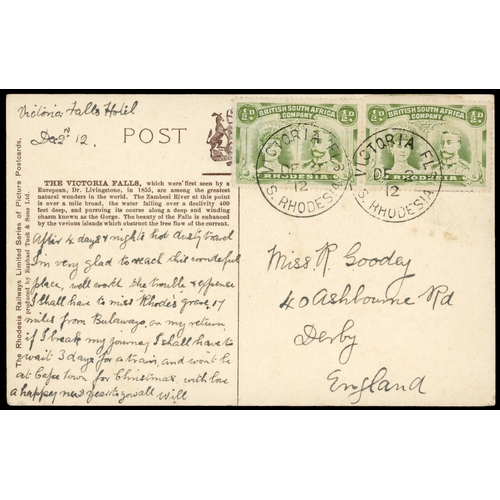 Victoria Falls Hotel
Dec 2nd 12.
POST
BRITISH SOUTH AFRICA
COMPANY
½d.
½d.
RHODESIA
BRITISH SOUTH AFRICA
COMPANY
½d.
½d.
RHODESIA
VICTORIA FA
DE
12
S. RHODESIA
VICTORIA FA
DE
12
S. RHODESIA
The Rhodesia Railways Limited Series of Picture Postcards,
prepared by Raphael Tuck & Sons Ltd.
THE VICTORIA FALLS, which were first seen by a
European, Dr. Livingstone, in 1855, are among the greatest
natural wonders in the world. The Zambesi River at this point
is over a mile broad, the water falling over a declivity 400
feet deep, and pursuing its course along a deep and winding
chasm known as the Gorge. The beauty of the Falls is enhanced
by the various islands which obstruct the free flow of the current.
After 4 days & nights hot dusty travel
I'm very glad to reach this wonderful
place, well worth the trouble & expense
I shall have to miss Rhodes grave, 17
miles from Bulawayo, on my return,
if I break my journey I shall have to
wait 3 days for a train, and won't be
at Cape Town for Christmas, with love
a happy new year to you all Will
Miss R. Goodey
40 Ashbourne Rd
Derby
England